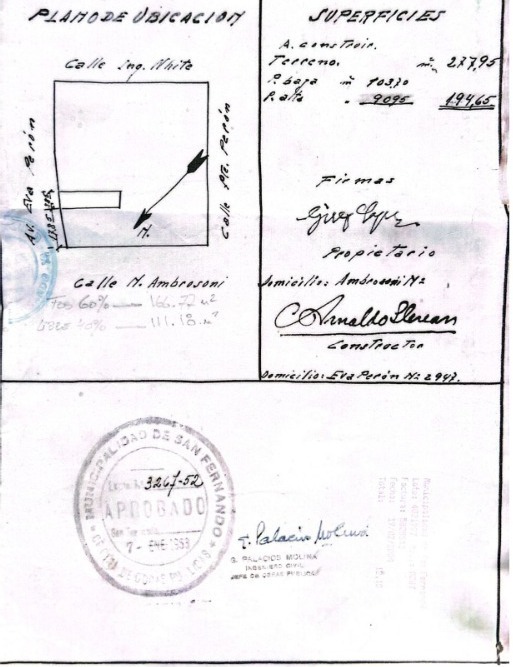 PLANO DE UBICACION
Calle Ing. White
Av. Eva Perón
Calle Pte. Perón
N.
Calle N. Ambrosoni
FOS 60% — 166.77 m²
LIBRE 40% — 111.18 m²
SUPERFICIES
A. construir.
Terreno. m² 277,95
P. baja m² 103,70
P. alta " 90,95 194,65
Firmas
Propietario
Domicilio: Ambrosoni Nº
Constructor
Domicilio: Eva Perón Nº 2947.
MUNICIPALIDAD DE SAN FERNANDO
3267-52
APROBADO
7 - ENE 1953
OFICINA DE OBRAS PUBLICAS
G. PALACIOS MOLINA
INGENIERO CIVIL
JEFE DE OBRAS PUBLICAS